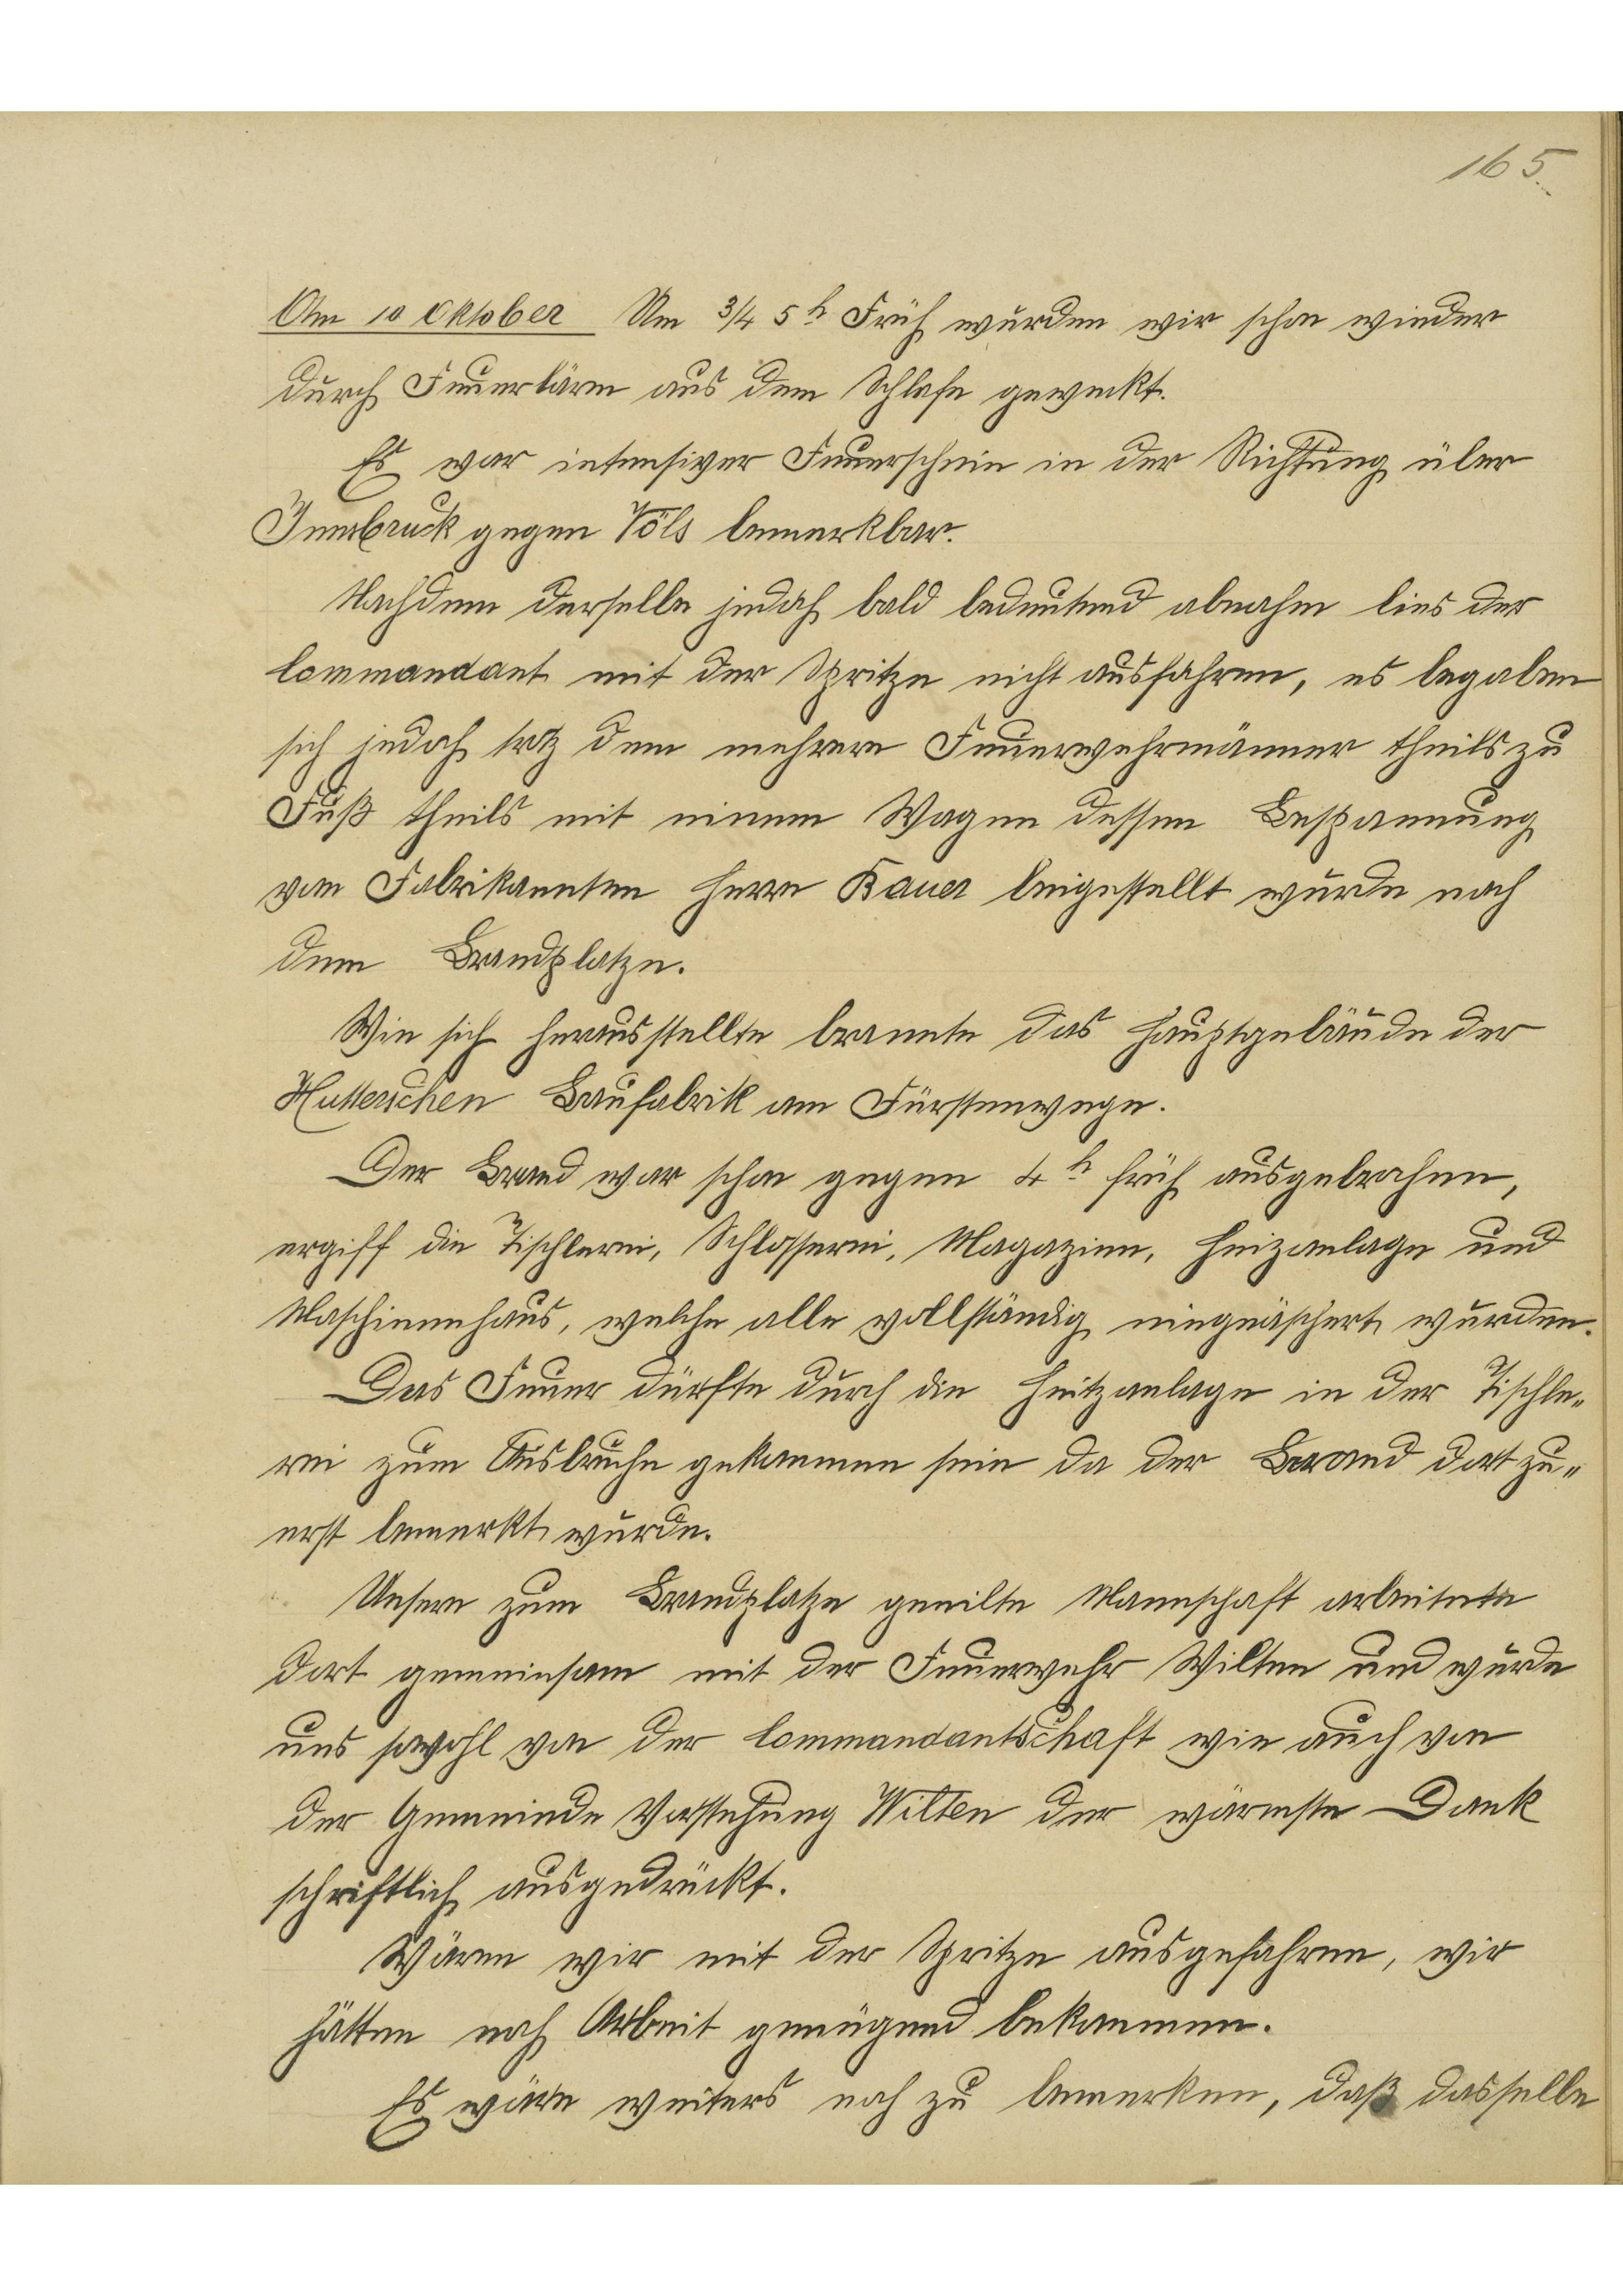 165.
Am 10 Oktober Um 3/4 5h Früh wurden wir schon wieder
durch Feuerlärm aus dem Schlafe geweckt.
Es war intensiver Feuerschein in der Richtung über
Innsbruck gegen Völs bemerkbar.
Nachdem derselbe jedoch bald bedeutend abnahm lies der
Commandant mit der Spritze nicht ausfahren, es begaben
sich jedoch trotz dem mehrere Feuerwehrmänner theils zu
Fuß theils mit einem Wagen dessen Bespannung
von Fabrikannten Herrn Bauer beigestellt wurde nach
dem Brandplatze.
Wie sich herausstellte brannte das Hauptgebäude der
Hutterschen Baufabrik am Fürstenwege.
Der Brand war schon gegen 4h früh ausgebrochen,
ergiff die Tischlerei, Schlosserei, Magazine, Heizanlage und
Maschinenhaus, welche alle vollständig eingeäschert wurden.
Das Feuer dürfte durch die Heitzanlage in der Tischle„
rei zum Ausbruche gekommen sein da der Brand dort zu„
erst bemerkt wurde.
Unsere zum Brandplatze geeilte Mannschaft arbeitete
dort gemeinsam mit der Feuerwehr Wilten und wurde
uns sowohl von der Commandantschaft wie auch von
der Gemeinde Vorstehung Wilten der wärmste Dank
schriftlich ausgedrückt.
Wären wir mit der Spritze ausgefahren, wir
hätten noch Arbeit genügend bekommen.
Es wäre weiters noch zu bemerken, daß dasselbe